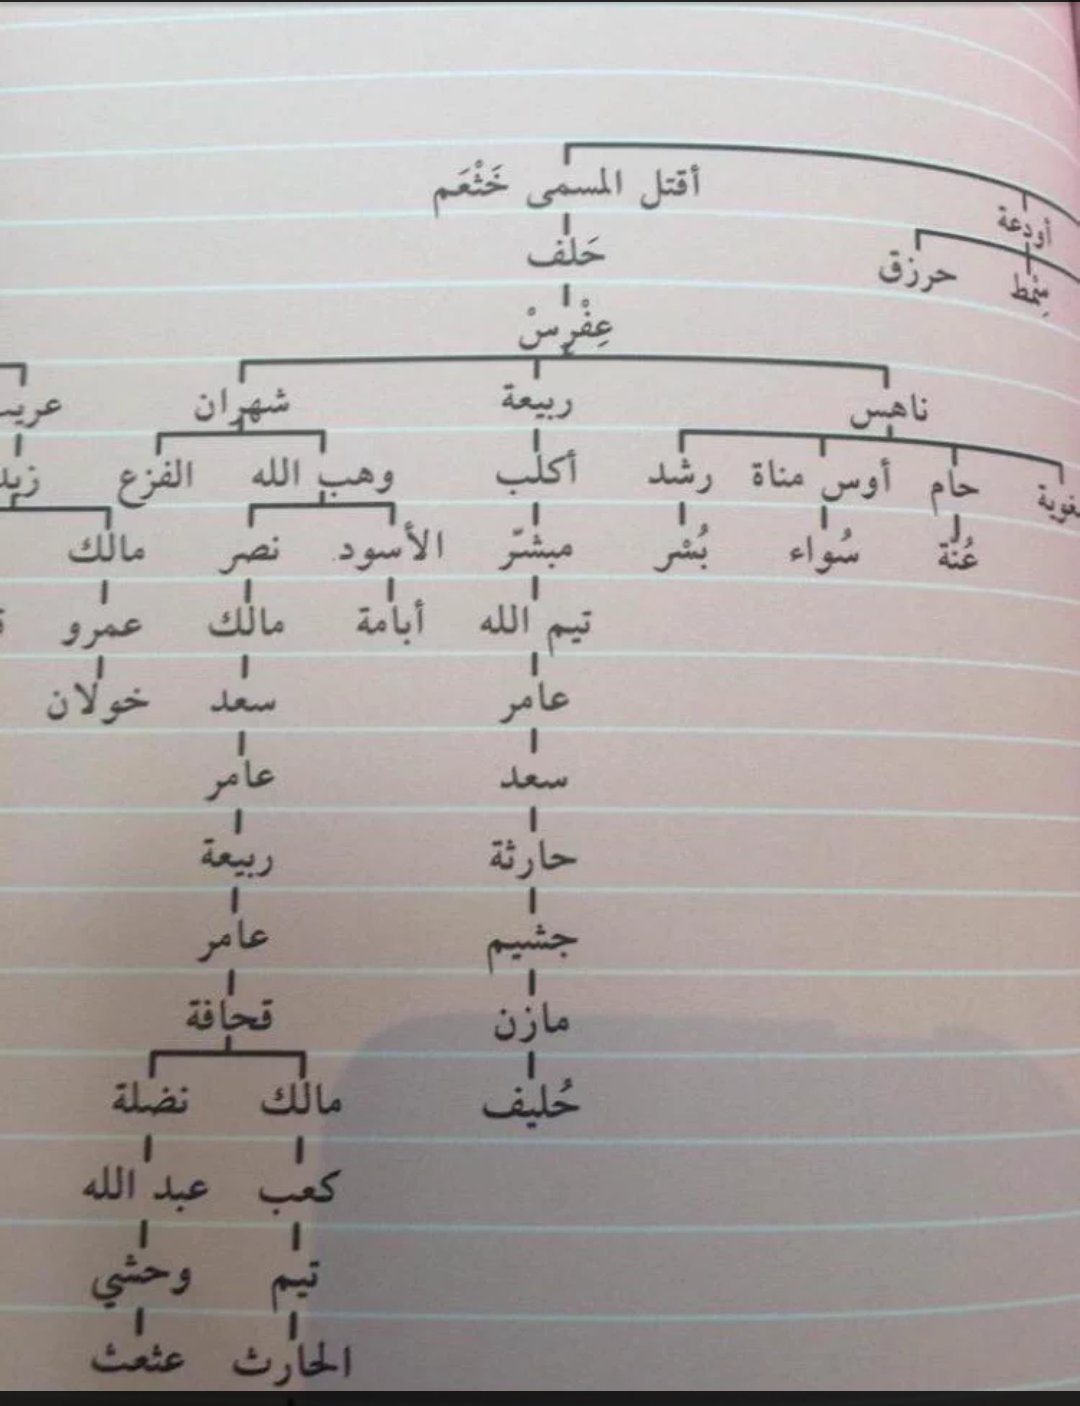 أقتل المسمى خَثْعَم
أودعة
حَلف
حرزق
عِفْرِسْ
ناهس ربيعة شهران
حام أوس مناة رشد أكلب وهب الله الفزع
عُنّة سُواء بُسْر مبشّر الأسود نصر مالك
تيم الله أبامة مالك عمرو
عامر سعد خولان
سعد عامر
حارثة ربيعة
جشيم عامر
مازن قحافة
حُليف مالك نضلة
كعب عبد الله
تيم وحشي
الحارث عثعث